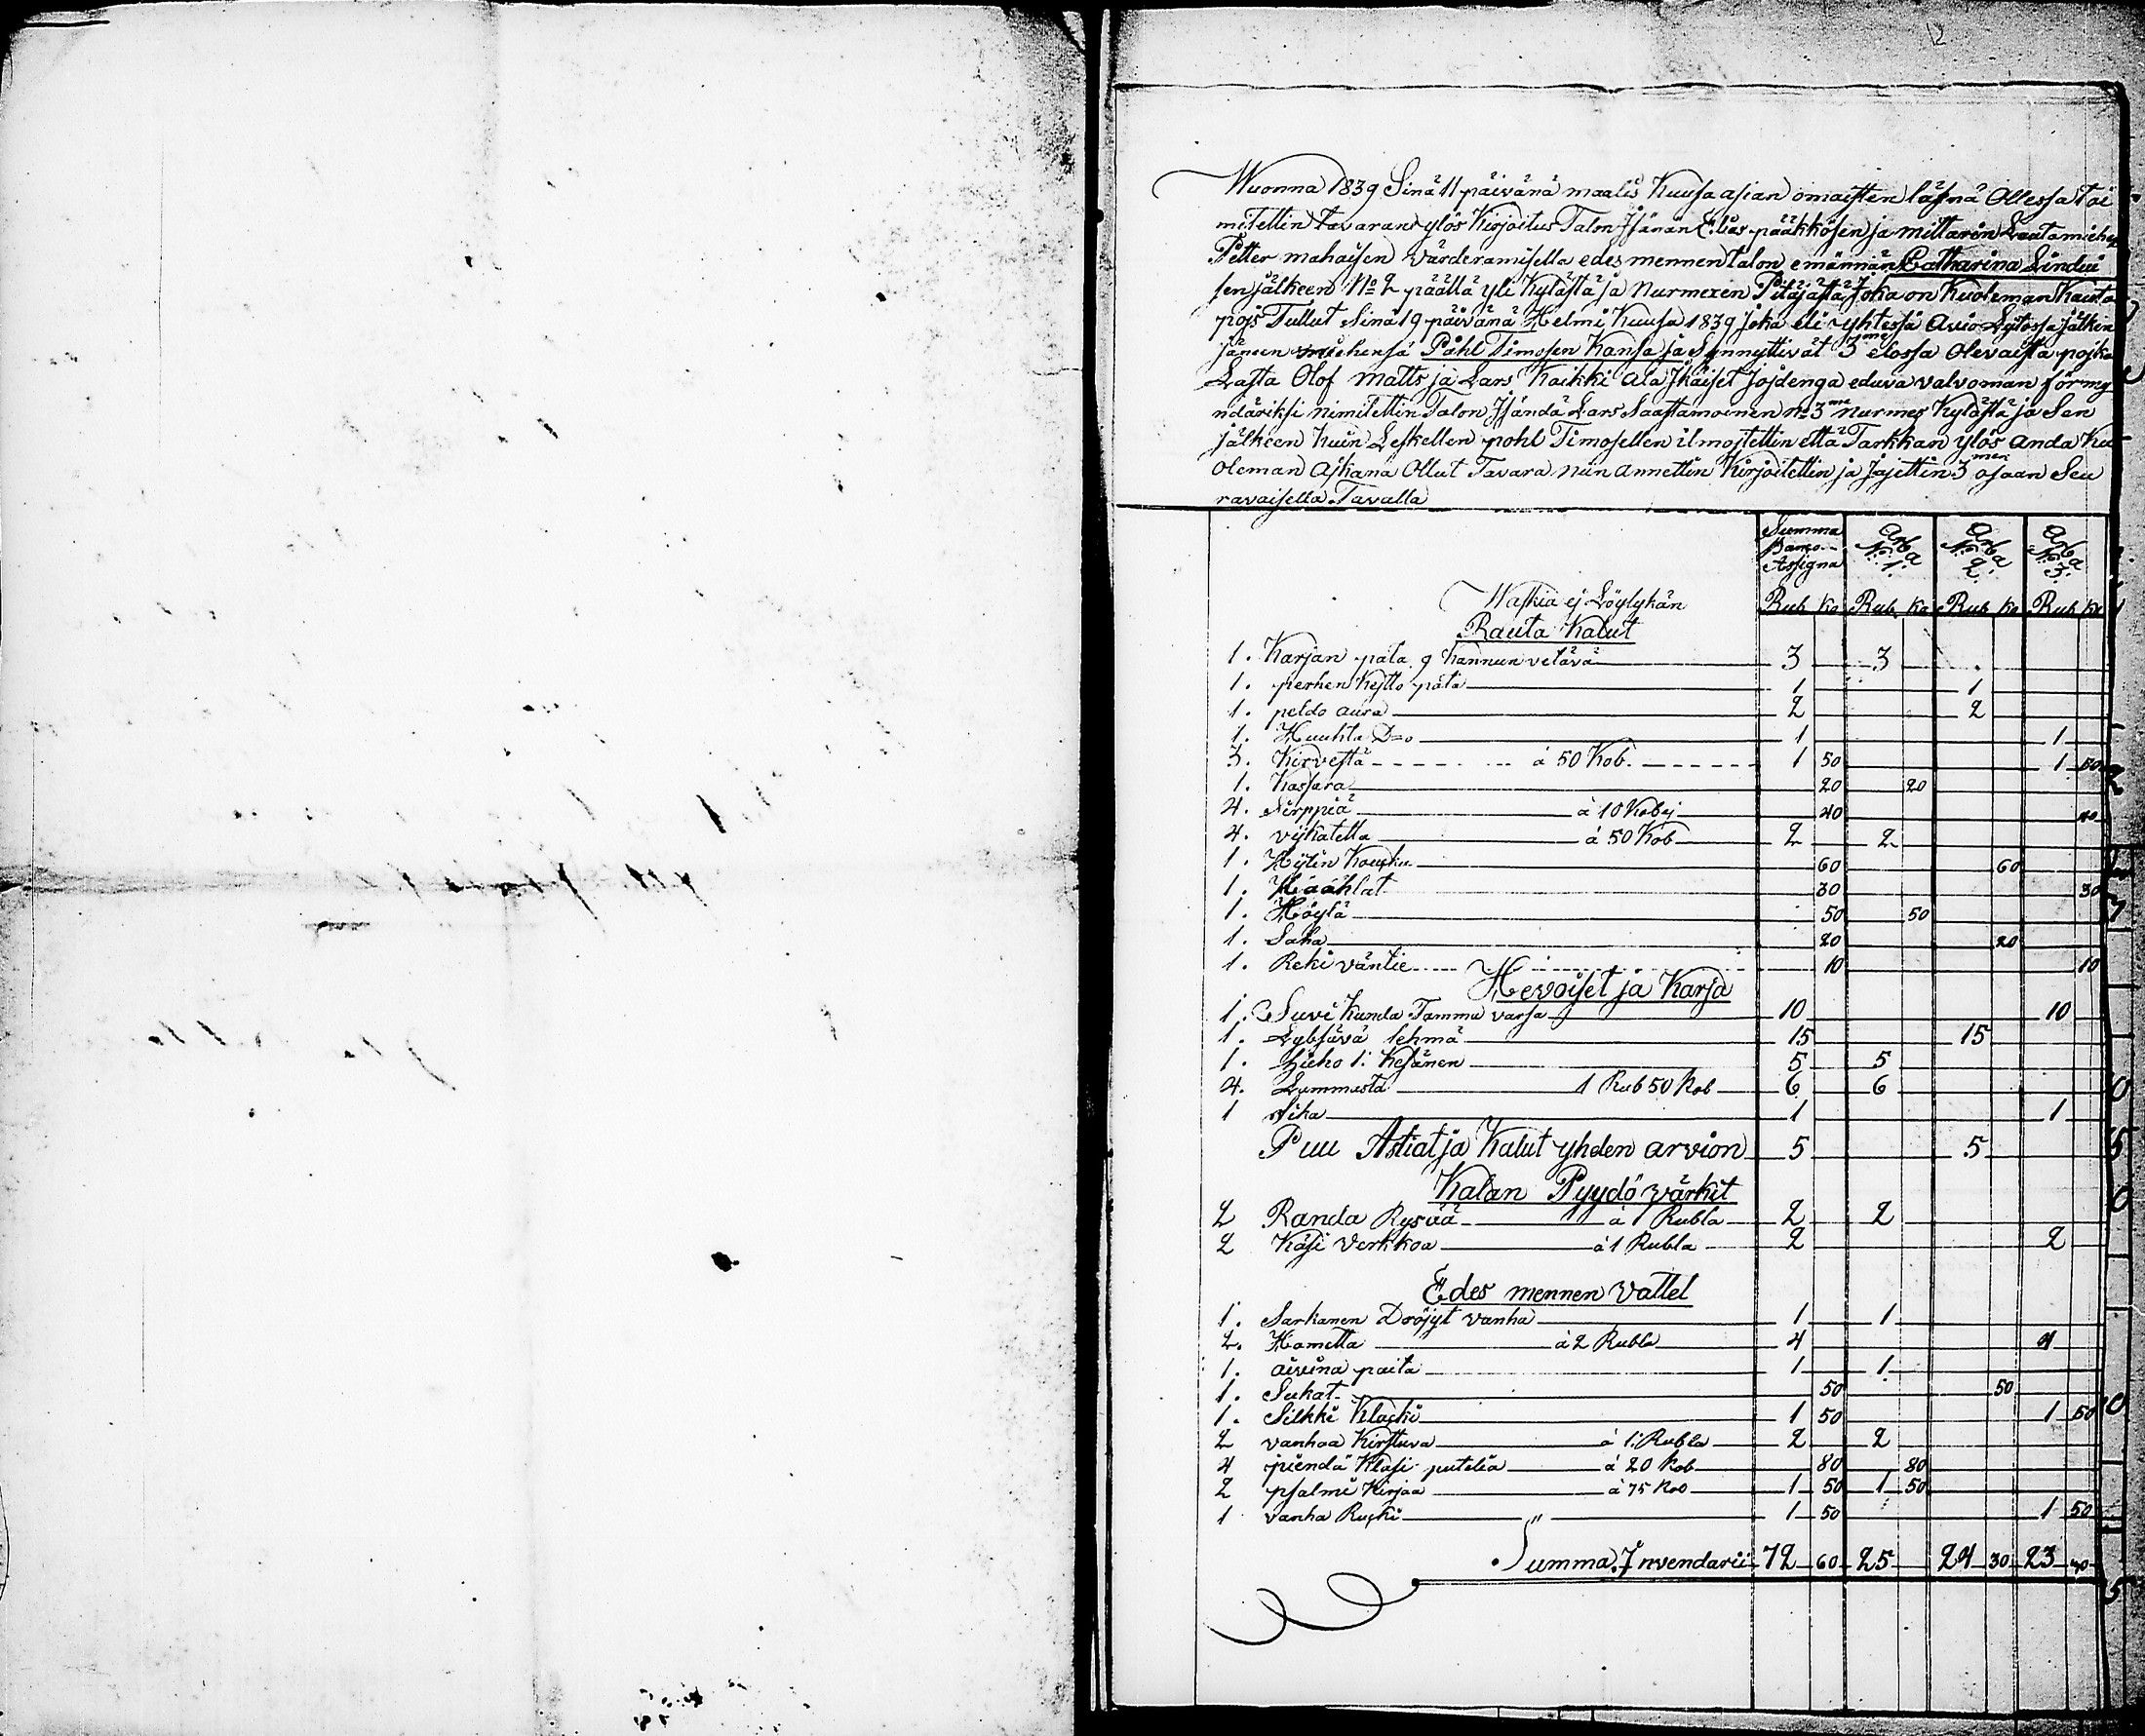 12
Wuonna 1839 Sinä 11 päivänä maalis Kuusa asian omaisten läsnä Ollessa toi
mitettin tavaran ylös Kirjoitus Talon Isänän Elias pääkkösen ja mittarin Lautamiehen
Petter mahoisen värderamisella edes mennen talon emännän Catharina Lindui
sen jälkeen No 2 päältä yli Kylästä ja Nurmexen Pitäjästä Joka on Kuoleman Kauta
pojs Tullut Sinä 19 päivänä Helmi Kuusa 1839 Joka eli yhtessä Avio Sylossa jälkin
jäneen miehensä Påhl Timosen Kansa ja Synnyttivät 3 me elossa Olevaista pojka
Lasta Olof Matts ja Lars Kaikki ala Ikäiset Jojdenga eduva valvoman förmy
ndäriksi nimitettin Talon Isändä Lars Saastamoinen No 3 me Nurmes Kylästä ja Sen
jälkeen Kuin Leskellen pohl Timosellen ilmojtettin että Tarkkan ylös anda Ku
oleman Ajkana Ollut Tavara niin annettin Kirjoitettin ja Jajettin 3 men osaan Seu
ravaisella Tavalla
Summa Banco Assigna Arba No 1. Arba No 2. Arba No 3.
Waskia ej Löylykän Rub Ko Rub Ko Rub Ko Rub Ko
Rauta Kalut
1. Karjan pata 9 Kannun vetävä 3 3
1. perhen Kejtto pata 1 1
1. peldo aura 2 2
1. Huuhta D=o 1 1
3. Kirvestä á 50 Kob. 1 50 1 50
1. Kassara 20 20
4. Sirppiä á 10 Kobej 40 40
4. vijkatetta á 50 Kob 2 2
1. Hijlin Kouku 60 60
1. Käählat 30 30
1. Höylä 50 50
1. Saha 20 20
1. Reki väntie 10 10
Hevoiset ja Karja
1. Suvi Kunda Tamma varsa 10 10
1. Lybsävä lehmä 15 15
1. hieho 1: Kesänen 5 5
4. Lammasta 1 Rub 50 Kob 6 6
1 sika 1 1
Puu Astiat ja Kalut yhden arvion 5 5
Kalan Pyydö värkit
2 Randa Rysää á 1 Rubla 2 2
2 Käsi Verkkoa á 1 Rubla 2 2
Edes mennen Vattet
1. Sarkanen Dröjyt vanha 1 1
2. Hametta á 2 Rubla 4 4
1. aivina paita 1 1
1. Sukat 50 50
1. Silkki Klacki 1 50 1 50
2 vanhaa Kirstuva á 1: Rubla 2 2
4 piendä Klasi putelia á 20 Kob 80 80
2 psalmi Kirjaa á 75 Kob 1 50 1 50
1 vanha Rucki " 1 50 1 50
Summa Invendarii 72 60 25 24 30 23 30